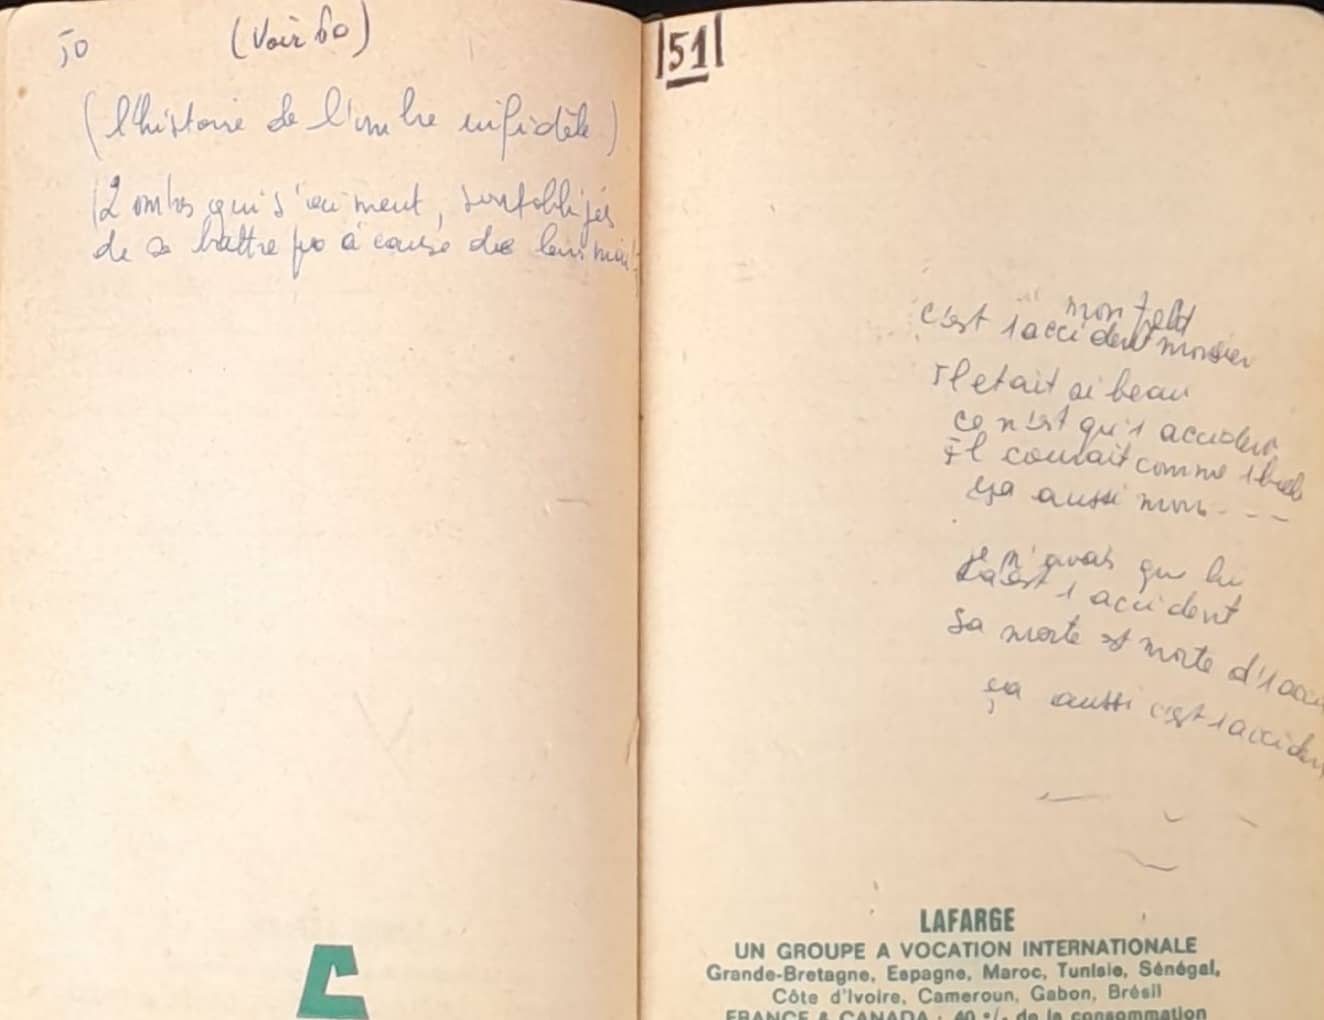 50 (Voir 60)
(l'histoire de l'ombre infidèle)
2 ombres qui s'aiment, sont obligés
de se battre à cause de leurs
|51|
mon
c'est 1 accident monsieur
Il etait si beau
ce n'est qu'1 accident
Il courait comme 1
ça aussi mon - - -
je n'avais que lui
c'est 1 accident
Sa morte est morte d'1
ça aussi c'est 1 accident
LAFARGE
UN GROUPE A VOCATION INTERNATIONALE
Grande-Bretagne, Espagne, Maroc, Tunisie, Sénégal,
Côte d'Ivoire, Cameroun, Gabon, Brésil
FRANCE & CANADA : 40 % de la consommation